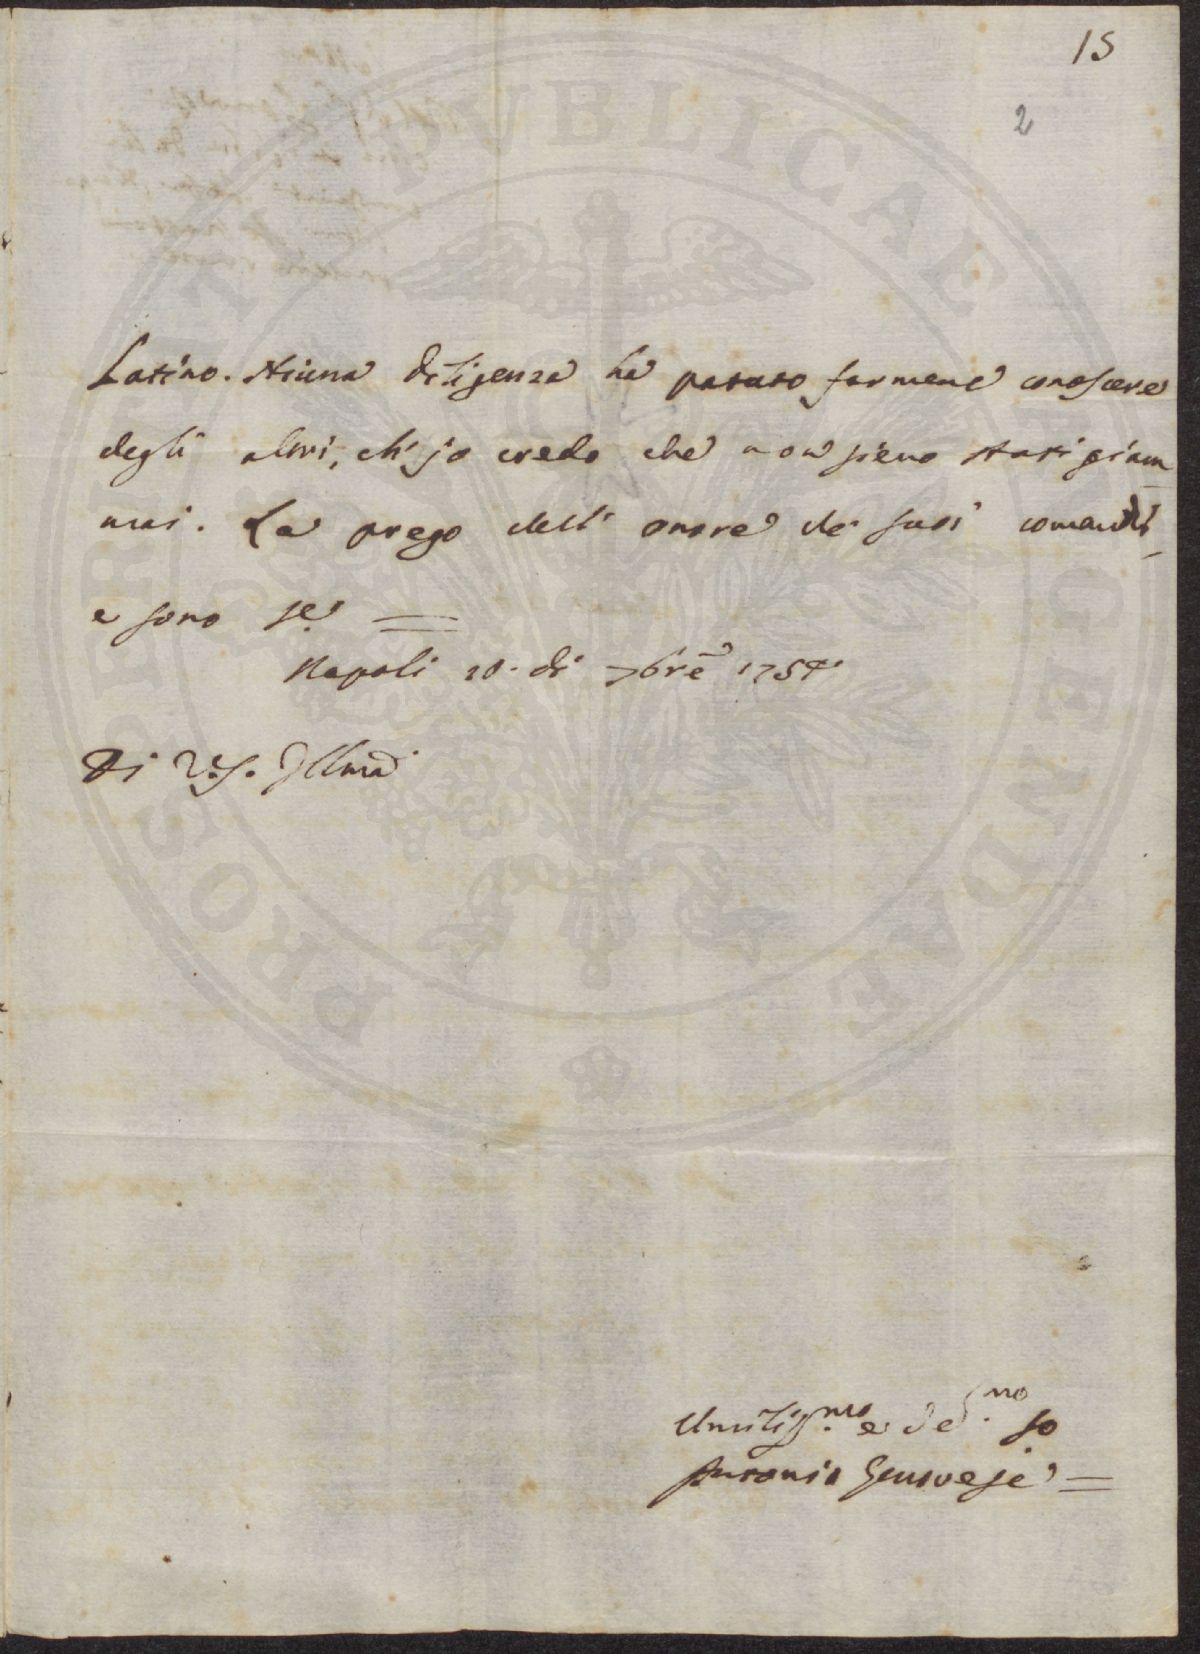 15
2
Latino. Niuna diligenza ha potuto farmene conoscere
degli altri, ch'io credo che non sieno stati giam
mai. La prego dell' onore de' suoi comandi
e sono se. =
Napoli 20. di 7bre 1754.
Di V. S. Illma
Umiliss.mo e de.mo so
Antonio Genovese =
PROSPERITATI PUBLICAE AUGENDAE